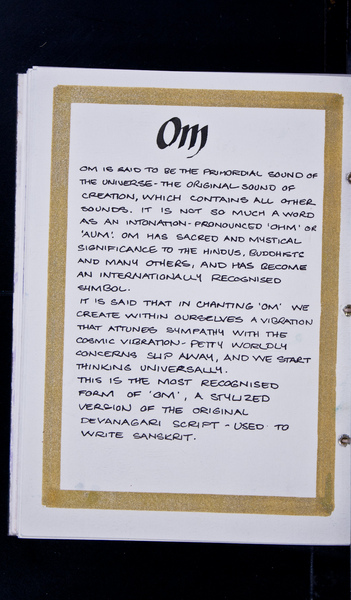 Om
OM IS SAID TO BE THE PRIMORDIAL SOUND OF
THE UNIVERSE - THE ORIGINAL SOUND OF
CREATION, WHICH CONTAINS ALL OTHER
SOUNDS. IT IS NOT SO MUCH A WORD
AS AN INTONATION - PRONOUNCED 'OHM' OR
'AUM'. OM HAS SACRED AND MYSTICAL
SIGNIFICANCE TO THE HINDUS, BUDDHISTS
AND MANY OTHERS, AND HAS BECOME
AN INTERNATIONALLY RECOGNISED
SYMBOL.
IT IS SAID THAT IN CHANTING 'OM' WE
CREATE WITHIN OURSELVES A VIBRATION
THAT ATTUNES SYMPATHY WITH THE
COSMIC VIBRATION - PETTY WORLDLY
CONCERNS SLIP AWAY, AND WE START
THINKING UNIVERSALLY.
THIS IS THE MOST RECOGNISED
FORM OF 'OM', A STYLIZED
VERSION OF THE ORIGINAL
DEVANAGARI SCRIPT - USED TO
WRITE SANSKRIT.